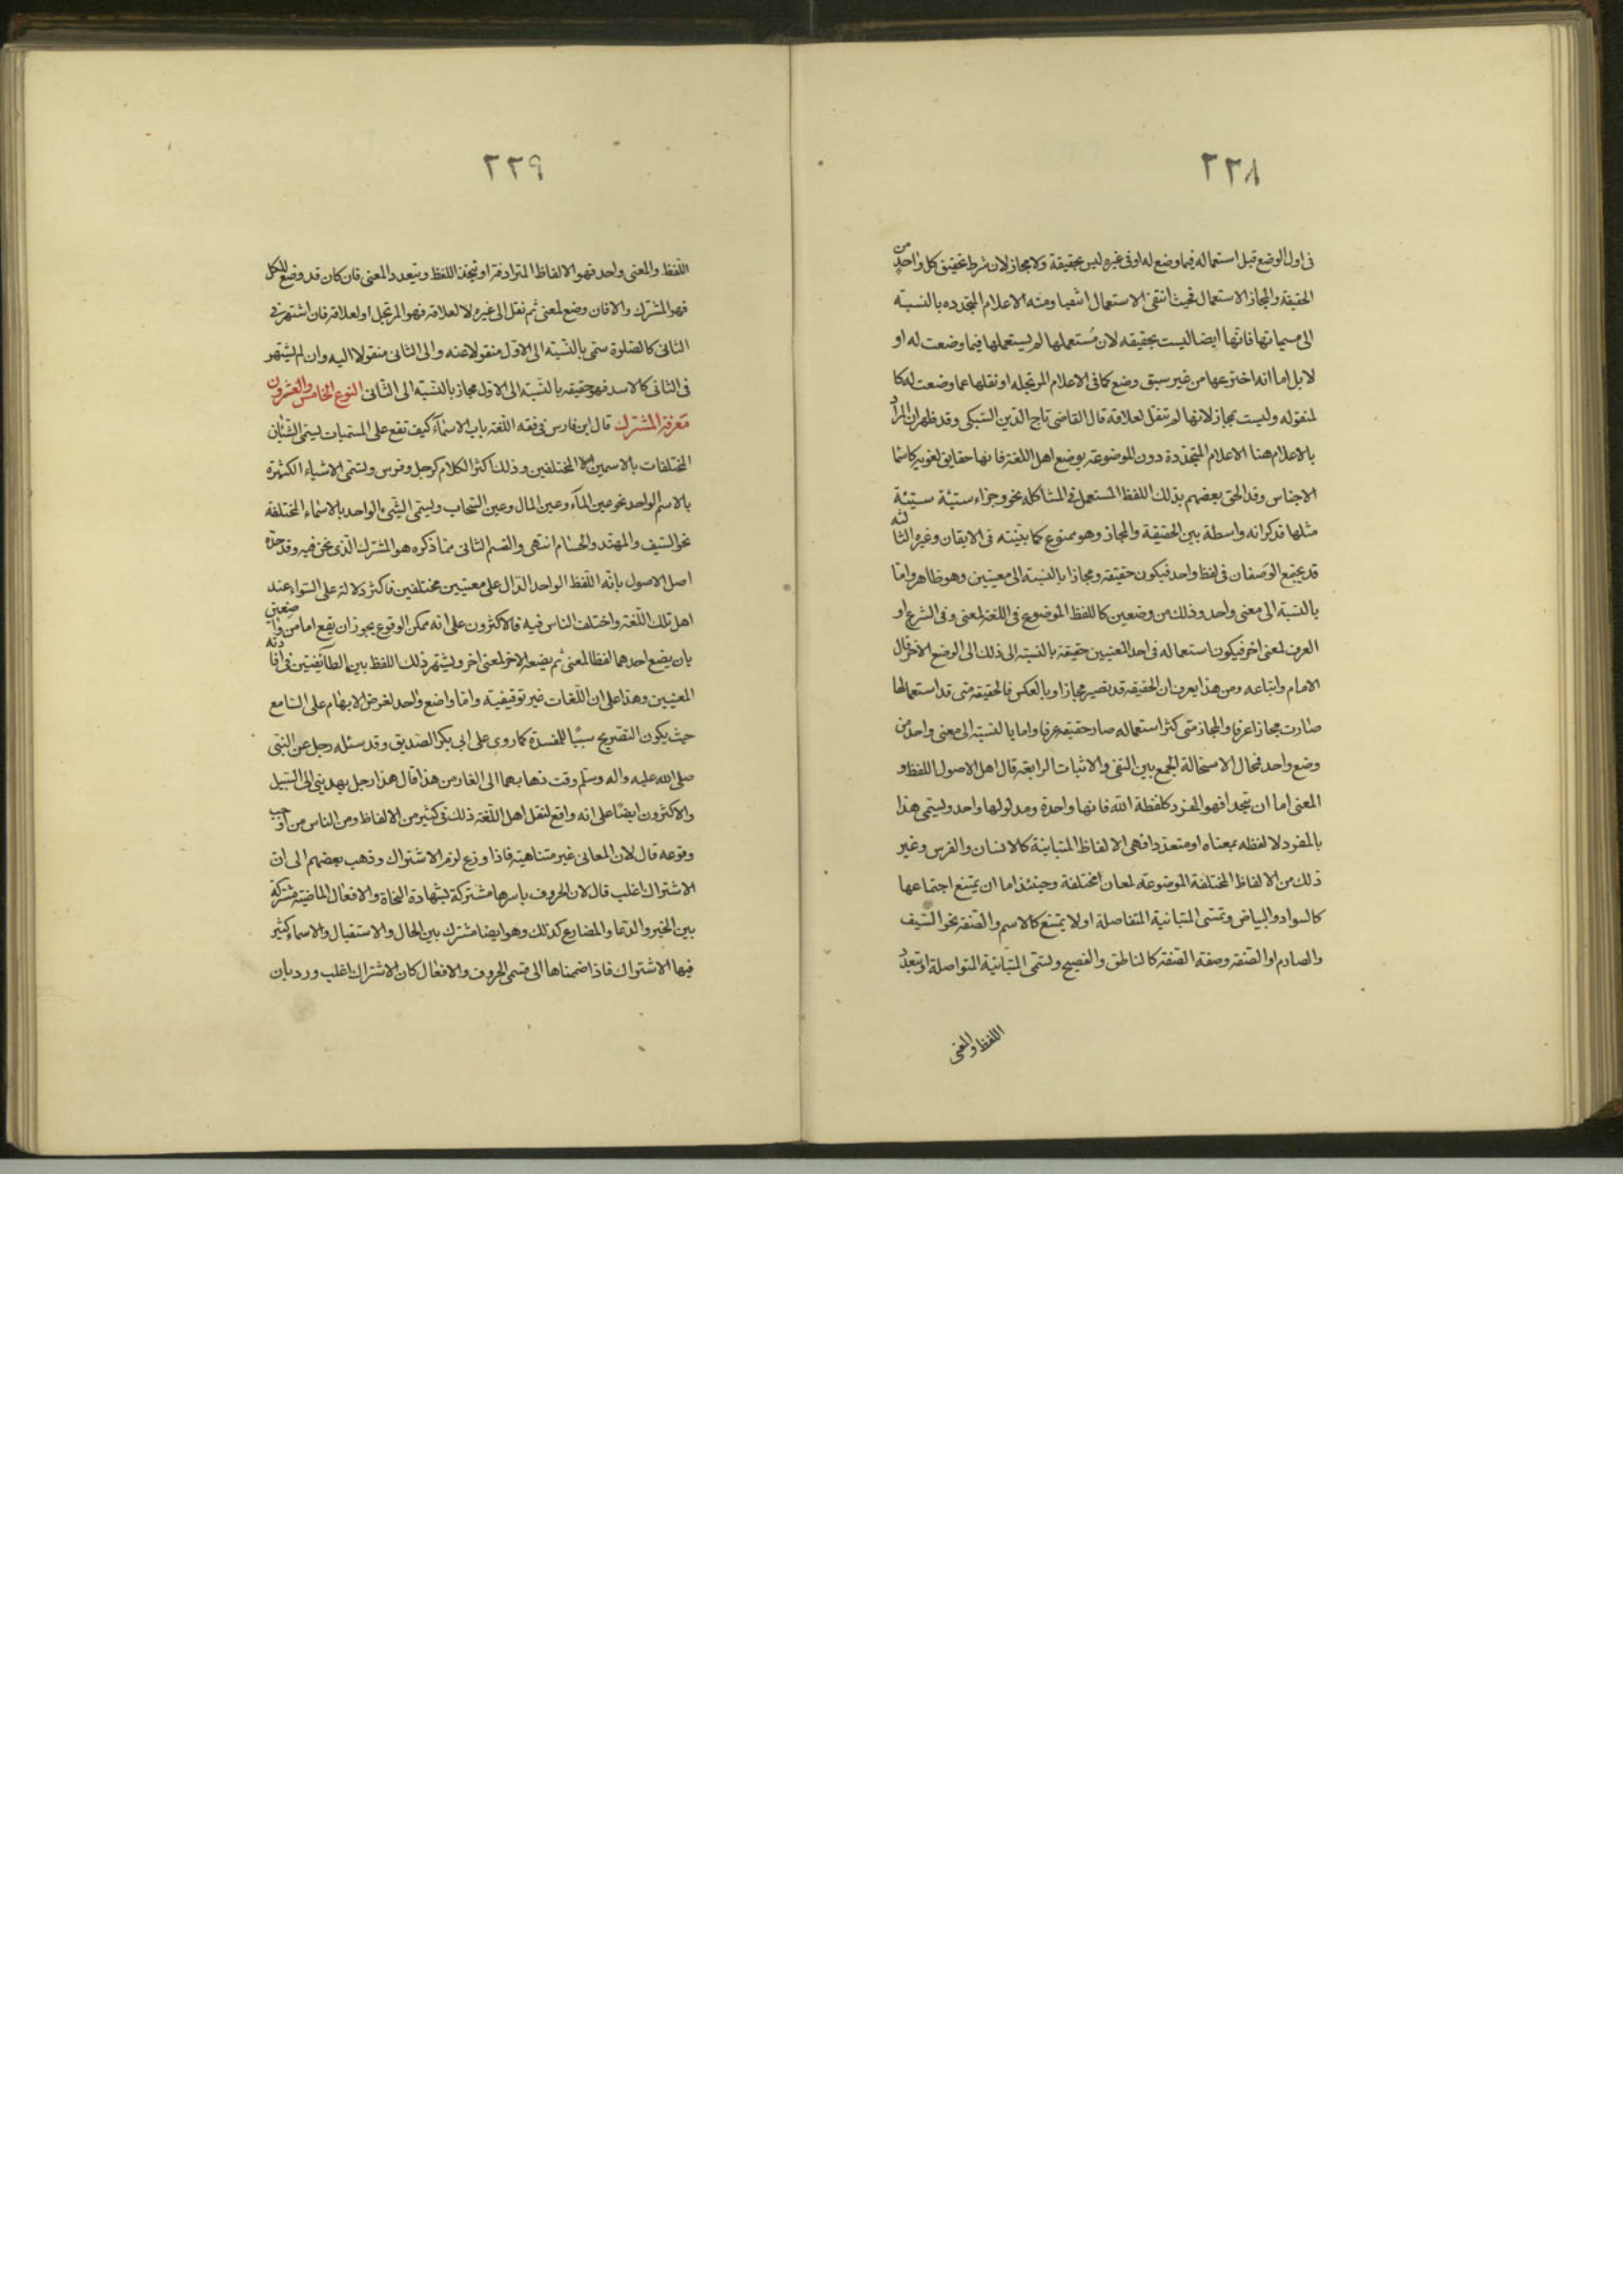 ٢٢٨
فى اول الوضع قبل استعماله فيما وضع له او فى غيره ليس بحقيقة ولا مجاز لان شرط تحقيق كل واحد من
الحقيقة والمجاز الاستعمال فحيث انتفى الاستعمال انتفيا ومنه الاعلام المتجدده بالنسبته
الى مسمياتها فانها ايضا ليست بحقيقه لان مُستعملها لم يستعملها فيما وضعت له او
لا بل اما انه اخترعها من غير سبق وضع كما فى الاعلام المرتجله او نقلها عما وضعت له كا
لمنقوله وليست بمجاز لانها لم تنقل لعلاقة قال القاضى تاج الدين السبكى وقد ظهر ان المراد
بالاعلام هنا الاعلام المتجددة دون الموضوعة بوضع اهل اللغة فانها حقايق لغويه كاسما
الاجناس وقد الحق بعضهم بذلك اللفظ المستعمل فى المشاكله نحو وجزاء سيئة سيئة
مثلها فذكر انه واسطة بين الحقيقة والمجاز وهو ممنوع كما بينته فى الاتقان وغيره الثالثه
قد يجتمع الوصفان فى لفظ واحد فيكون حقيقة ومجازا بالنسبة الى معنيين وهو ظاهر واما
بالنسبة الى معنى واحد وذلك من وضعين كاللفظ الموضوع فى اللغة لمعنى وفى الشرع او
العرف لمعنى اخر فيكون استعماله فى احد المعنيين حقيقة بالنسبة الى ذلك الى الوضع الاخر قال
الامام واتباعه ومن هذا يعرف ان الحقيقة قد تصير مجازا وبالعكس فالحقيقة متى قد استعمالها
صارت مجازا عرفا والمجاز متى كثر استعماله صار حقيقة عرفا واما بالنسبة الى معنى واحد من
وضع واحد فمحال الاستحالة الجمع بين النفى والاثبات الرابعة قال اهل الاصول اللفظ و
المعنى اما ان تتحدا فهو المفرد كلفظة الله فانها واحدة ومدلولها واحد ويسمى هذا
بالمفرد لا لفظه بمعناه او متعددا فهى الالفاظ المتباينة كالانسان والفرس وغير
ذلك من الالفاظ المختلفة الموضوعة لمعان مختلفة وحينئذ اما ان يمتنع اجتماعها
كالسواد والبياض وتسمى المتباينة المتفاصلة او لا يمتنع كالاسم والصفة نحو السيف
والصارم او الصفة وصفة الصفة كالناطق والفصيح وتسمى المتباينة المتواصلة او يتعدد
اللفظ والمعنى
٢٢٩
اللفظ والمعنى واحد فهو الالفاظ المترادفة او يتحد اللفظ ويتعدد المعنى فان كان قد وضع للكل
فهو المشترك والا فان وضع لمعنى ثم نقل الى غيره لا لعلاقة فهو المرتجل او لعلاقة فان اشتهر فى
الثانى كالصلوة سمى بالنسبة الى الاول منقولا عنه والى الثانى منقولا اليه وان لم يشتهر
فى الثانى كالاسد فهو حقيقة بالنسبة الى الاول مجاز بالنسبة الى الثانى النوع الخامس والعشرون
معرفة المشترك قال ابن فارس فى فقه اللغة باب الاسمآء كيف تقع على المسميات يسمى الشيئان
المختلفات بالاسمين المختلفين وذلك اكثر الكلام كرجل وفرس وتسمى الاشياء الكثيرة
بالاسم الواحد نحو عين المآء وعين المال وعين السحاب ويسمى الشىء الواحد بالاسماء المختلفة
نحو السيف والمهند والحسام انتهى والقسم الثانى مما ذكره هو المشترك الذى نحن فيه وقد حده
اصل الاصول بانه اللفظ الواحد الدال على معنيين مختلفين فاكثر دلالة على السواء عند
اهل تلك اللغة واختلف الناس فيه فالاكثرون على انه ممكن الوقوع يجوز ان يقع اما من واضعين
بان يضع احدهما لفظا لمعنى ثم يضعه الاخر لمعنى اخر ويشتهر ذلك اللفظ بين الطائفتين فى افادته
المعنيين وهذا على ان اللغات غير توقيفية واما واضع واحد لغرض الابهام على السامع
حيث يكون التصريح سببا للمفسدة كما روى على ابى بكر الصديق وقد سئله رجل عن النبى
صلى الله عليه واله وسلم وقت ذهابهما الى الغار من هذا قال هذا رجل يهدينى الى السبيل
والاكثرون ايضا على انه واقع لنقل اهل اللغة ذلك فى كثير من الالفاظ ومن الناس من اوجب
وقوعه قال لان المعانى غير متناهية فاذا وزع لزم الاشتراك وذهب بعضهم الى ان
الاشتراك اغلب قال لان الحروف باسرها مشتركة بشهادة النحاة والافعال الماضية مشتركة
بين الخبر والدعا والمضارع كذلك وهو ايضا مشترك بين الحال والاستقبال والاسماء كثير
فيها الاشتراك فاذا ضممناها الى قسمى الحروف والافعال كان الاشتراك اغلب ورد بان